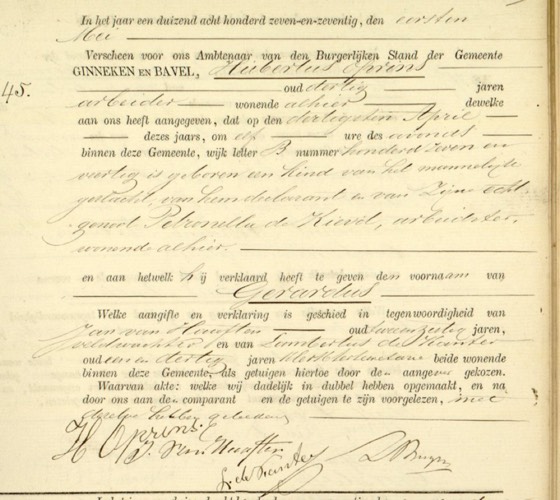 In het jaar een duizend acht honderd zeven-en-zeventig, den eersten
Mei
Verscheen voor ons Ambtenaar van den Burgerlijken Stand der Gemeente
GINNEKEN EN BAVEL, Hubertus Oprins
45. oud dertig jaren
arbeider wonende alhier dewelke
aan ons heeft aangegeven, dat op den dertigsten April
dezes jaars, om elf ure des avonds
binnen deze Gemeente, wijk letter B nummer honderd zeven en
veertig is geboren een kind van het mannelijke
geslacht, van hem declarant en van zijne echt-
genoot Petronella de Kievit, arbeidster,
wonende alhier.
en aan hetwelk hij verklaard heeft te geven den voornaam van
Gerardus
Welke aangifte en verklaring is geschied in tegenwoordigheid van
Jan van Haaften oud jaren,
veldwachter en van Lambertus de Kanter
oud een en dertig jaren klerk ter secretarie beide wonende
binnen deze Gemeente, als getuigen hiertoe door den aangever gekozen.
Waarvan akte: welke wij dadelijk in dubbel hebben opgemaakt, en na
door ons aan den comparant en de getuigen te zijn voorgelezen, met
dezelve hebben geteekend
H Oprins
J. van Haaften
L de Kanter